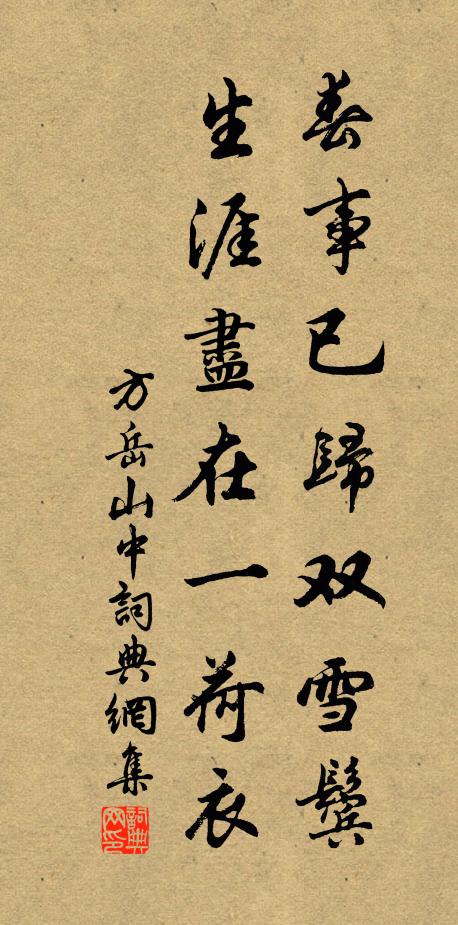 春事已歸双雪鬓
生涯盡在一荷衣
方岳山中詞典網集
詞典网印